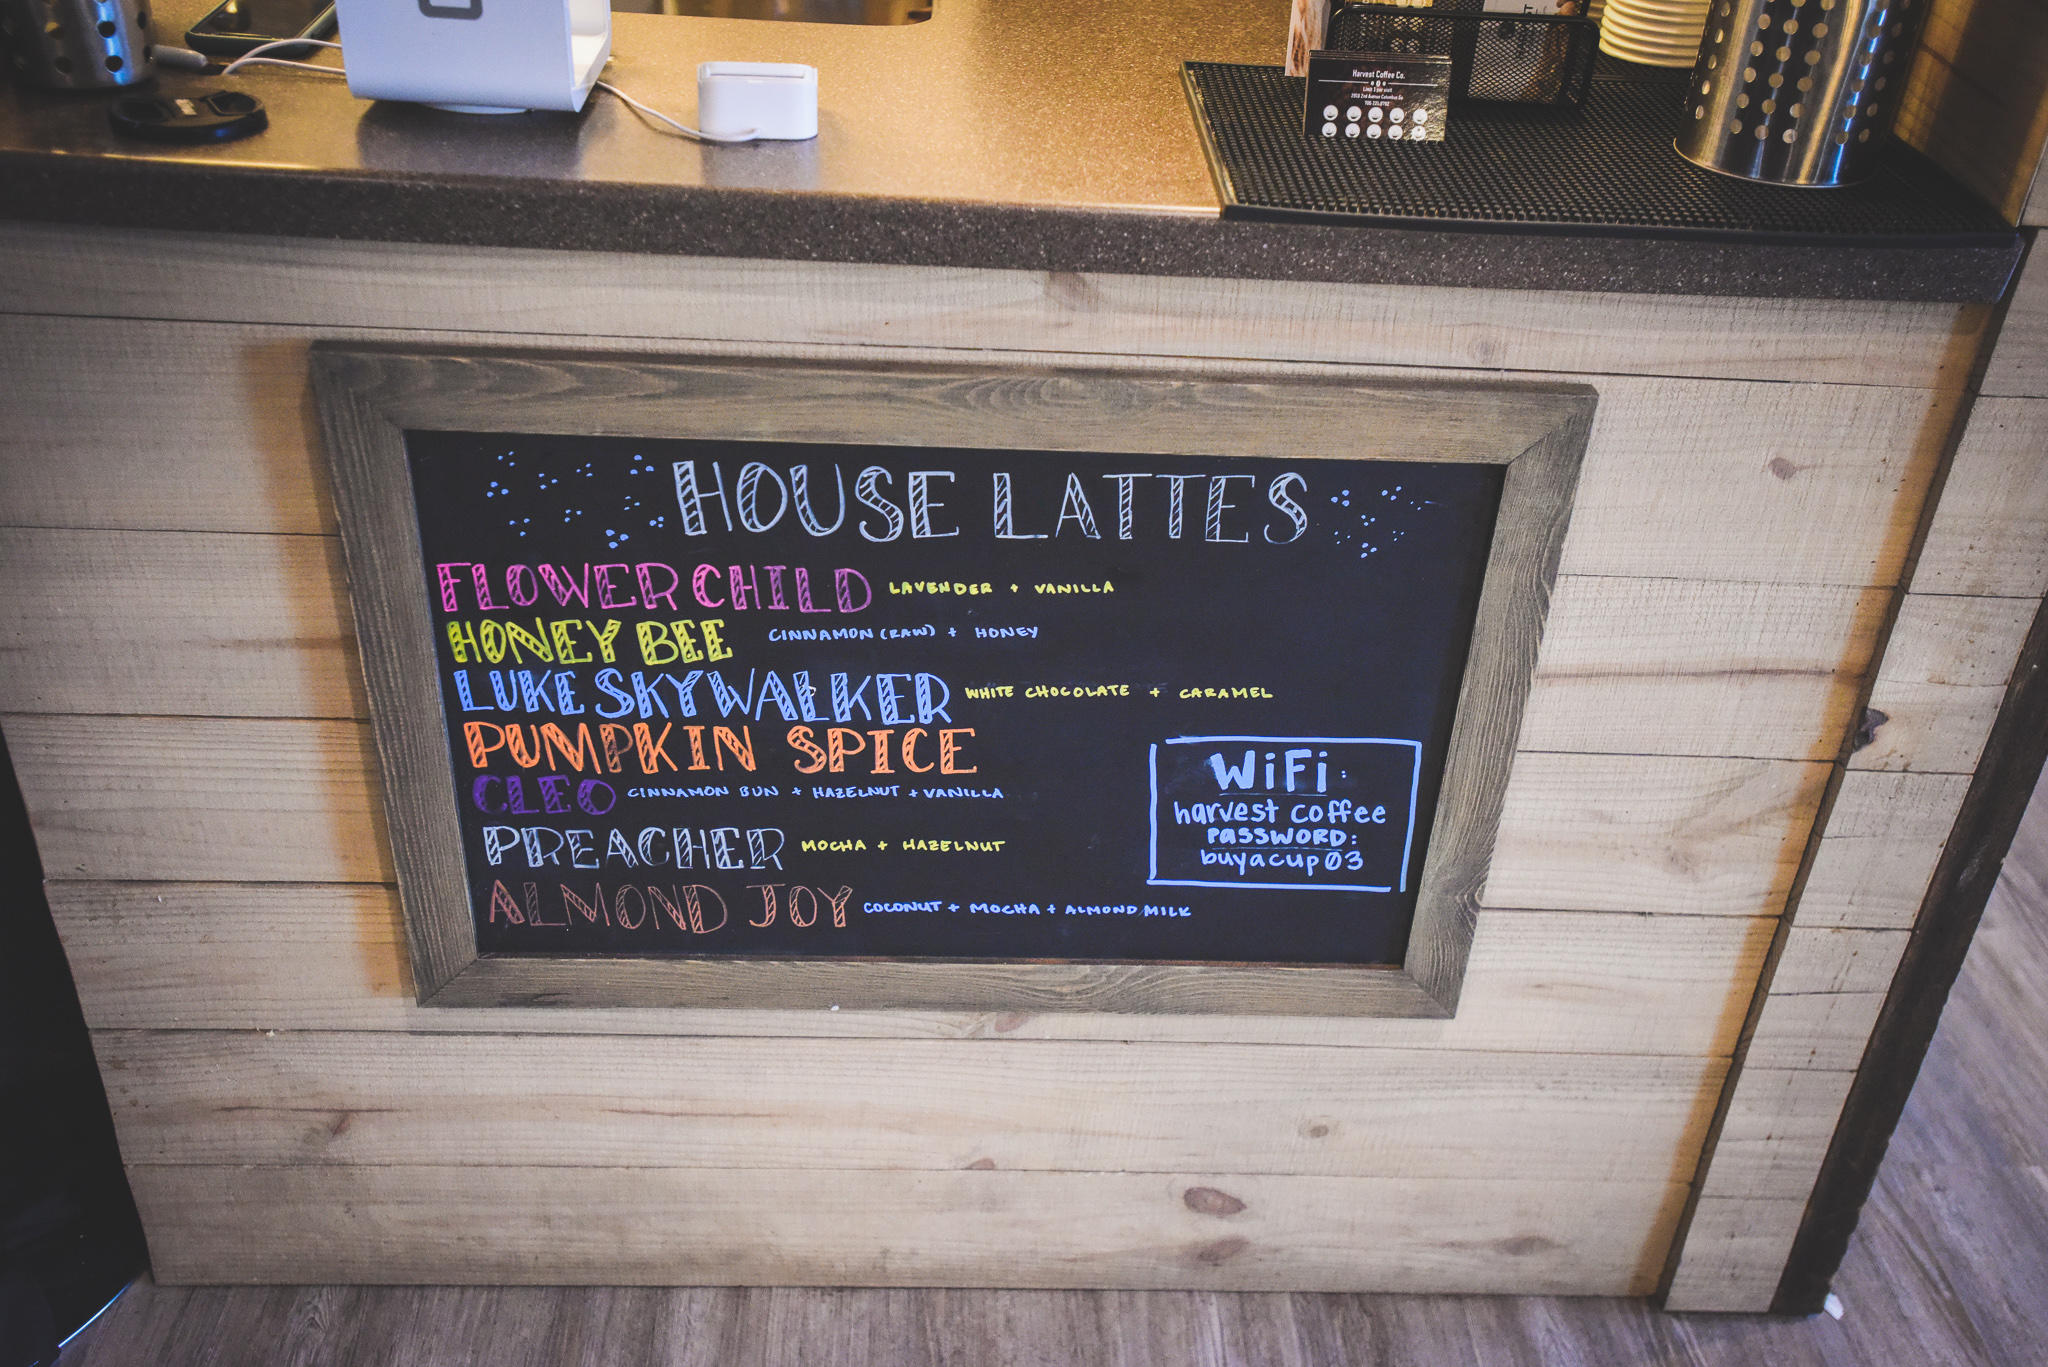 Harvest Coffee Co.
Limit 1 per visit
HOUSE LATTES
FLOWER CHILD LAVENDER + VANILLA
HONEY BEE CINNAMON (RAW) + HONEY
LUKE SKYWALKER WHITE CHOCOLATE + CARAMEL
PUMPKIN SPICE
CLEO CINNAMON BUN + HAZELNUT + VANILLA
PREACHER MOCHA + HAZELNUT
ALMOND JOY COCONUT + MOCHA + ALMOND MILK
WiFi:
harvest coffee
PASSWORD:
buyacup03